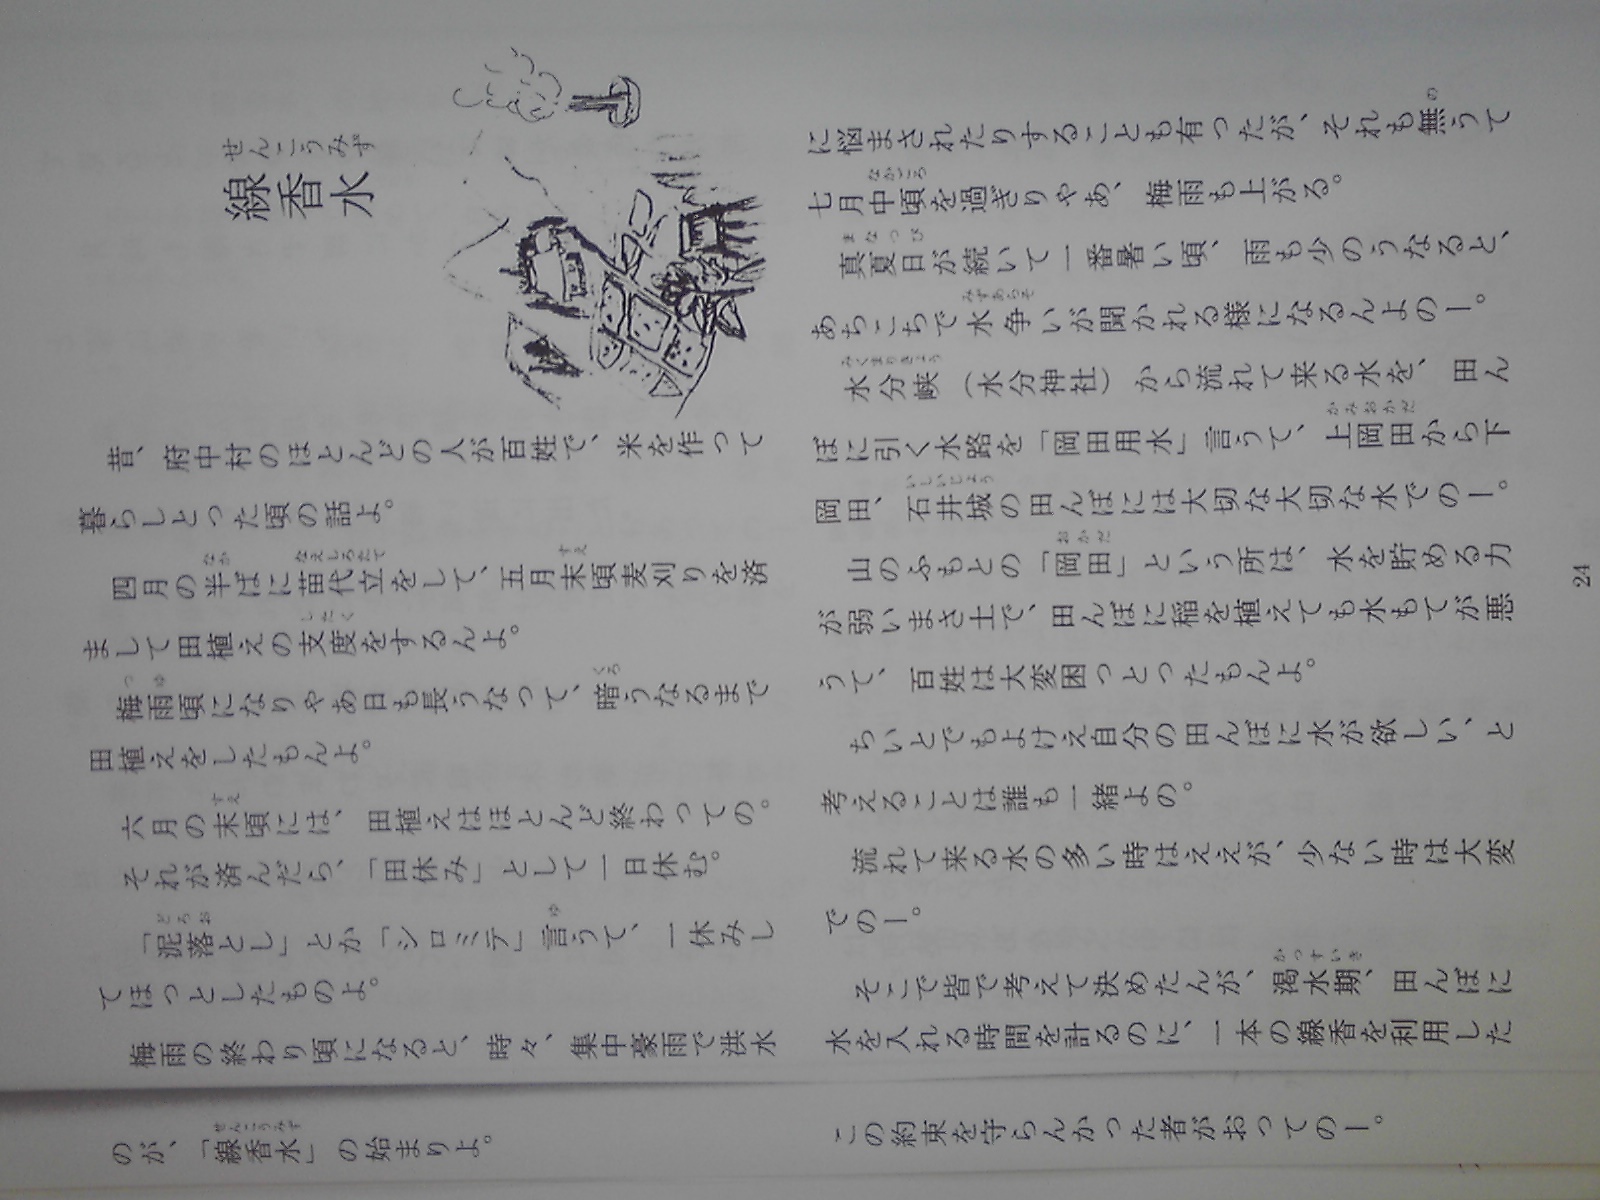 せんこうみず
線香水
昔、府中村のほとんどの人が百姓で、米を作って
暮らしとった頃の話よ。
なか なえしろたて すえ
四月の半ばに苗代立をして、五月末頃麦刈りを済
したく
まして田植えの支度をするんよ。
つゆ くろ
梅雨頃になりゃあ日も長うなって、暗うなるまで
田植えをしたもんよ。
すえ
六月の末頃には、田植えはほとんど終わっての。
それが済んだら、「田休み」として一日休む。
どろお ゆ
「泥落とし」とか「シロミテ」言うて、一休みし
てほっとしたものよ。
梅雨の終わり頃になると、時々、集中豪雨で洪水
の
に悩まされたりすることも有ったが、それも無うて
なかごろ
七月中頃を過ぎりゃあ、梅雨も上がる。
まなつび
真夏日が続いて一番暑い頃、雨も少のうなると、
みずあらそ
あちこちで水争いが聞かれる様になるんよのー。
みくまりきょう
水分峡（水分神社）から流れて来る水を、田ん
かみおかだ
ぼに引く水路を「岡田用水」言うて、上岡田から下
いしいじょう
岡田、石井城の田んぼには大切な大切な水でのー。
おかだ
山のふもとの「岡田」という所は、水を貯める力
が弱いまさ土で、田んぼに稲を植えても水もてが悪
うて、百姓は大変困っとったもんよ。
ちいとでもよけえ自分の田んぼに水が欲しい、と
考えることは誰も一緒よの。
流れて来る水の多い時はええが、少ない時は大変
でのー。
かっすいき
そこで皆で考えて決めたんが、渇水期、田んぼに
水を入れる時間を計るのに、一本の線香を利用した
24
せんこうみず
のが、「線香水」の始まりよ。
この約束を守らんかった者がおってのー。